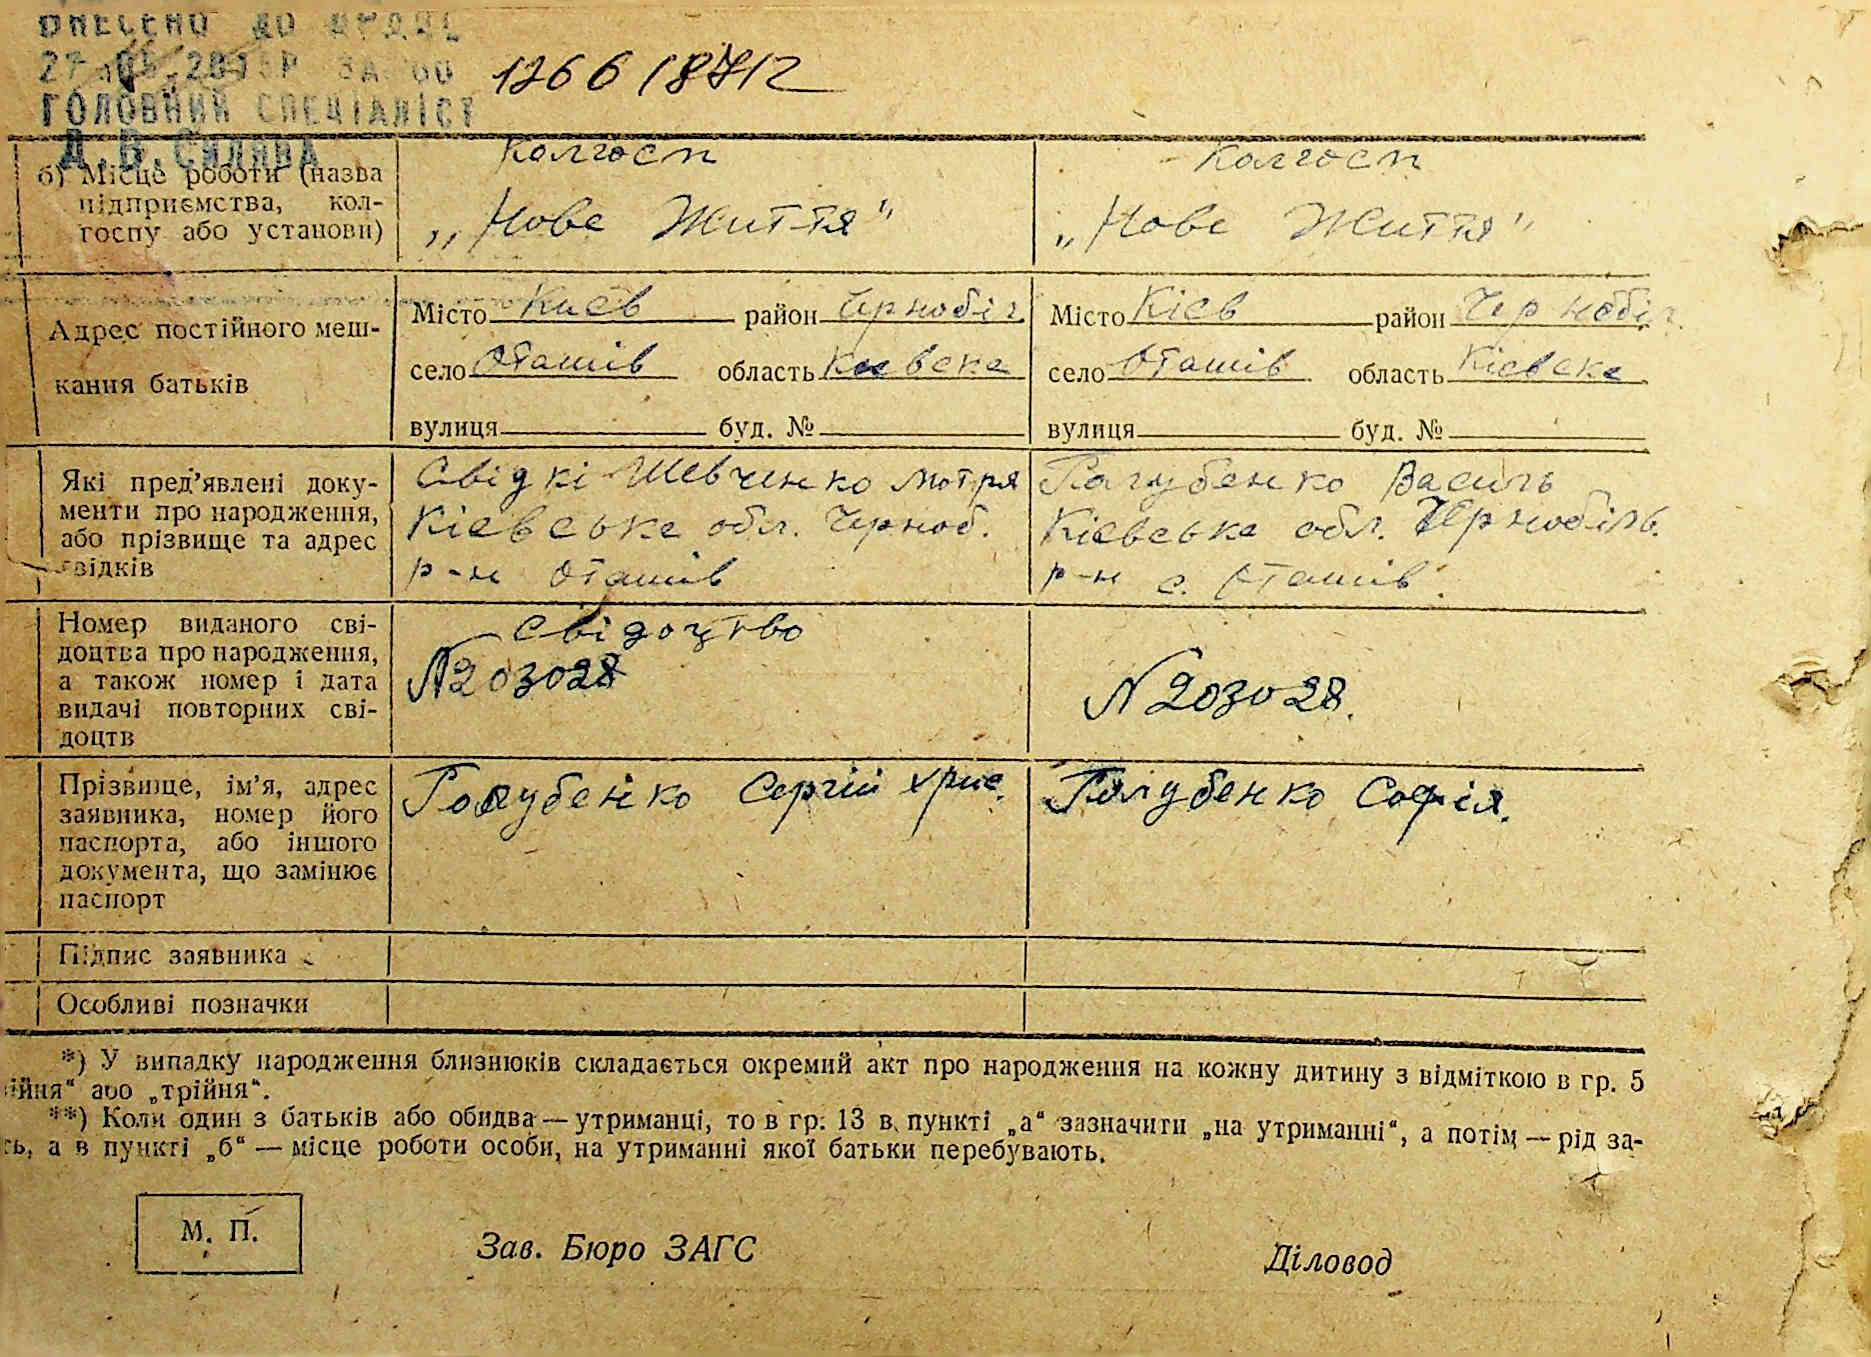 ВНЕСЕНО ДО
ГОЛОВНИЙ СПЕЦІАЛІСТ
1266 18712
б) Місце роботи (назва підприємства, колгоспу або установи)
Колгосп
„Нове Життя"
Колгосп
„Нове Життя"
Адрес постійного мешкання батьків
Місто Києв район Чернобіл.
село Оташів область Киевска
вулиця буд. №
Місто Кієв район Чернобіл.
село Оташів область Кіевска
вулиця буд. №
Які пред'явлені документи про народження, або прізвище та адрес свідків
Свідкі Шевченко Мотря
Кіевська обл. Черноб.
р-н Оташів
Голубенко Василь
Кіевська обл. Чернобіль.
р-н с. Оташів.
Номер виданого свідоцтва про народження, а також номер і дата видачі повторних свідоцтв
Свідоцтво
N 203028
N 203028.
Прізвище, ім'я, адрес заявника, номер його паспорта, або іншого документа, що замінює паспорт
Голубенко Сергій Хрис.
Голубенко Софія.
Підпис заявника
Особливі позначки
*) У випадку народження близнюків складається окремий акт про народження на кожну дитину з відміткою в гр. 5
ійня" або „трійня".
**) Коли один з батьків або обидва — утриманці, то в гр. 13 в пункті „а" зазначити „на утриманні", а потім — рід за-
ть, а в пункті „б" — місце роботи особи, на утриманні якої батьки перебувають.
М. П.
Зав. Бюро ЗАГС
Діловод